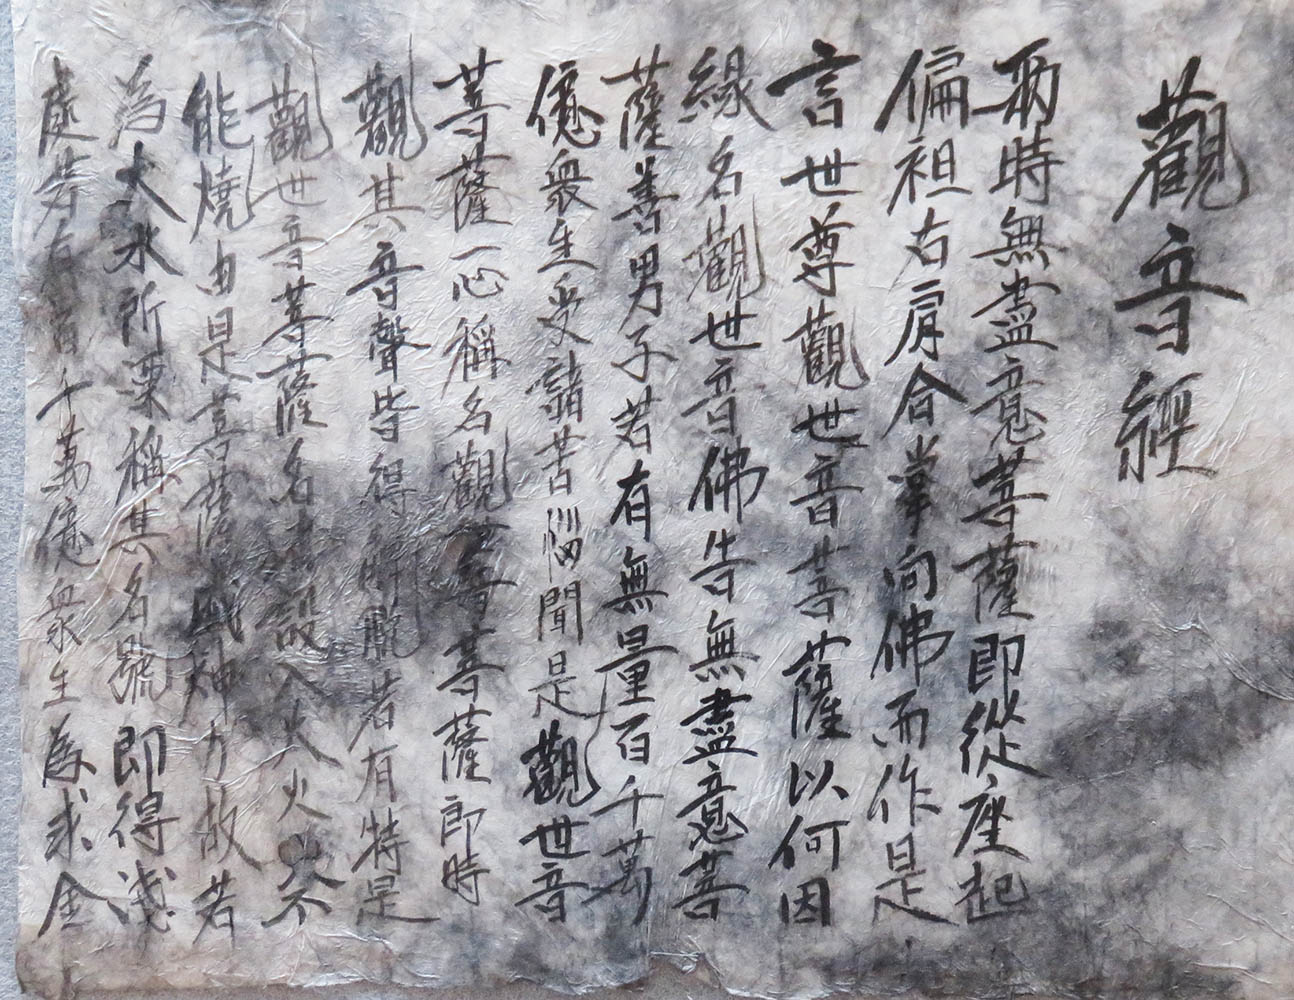 觀音經
爾時無盡意菩薩即從座起
偏袒右肩合掌向佛而作是
言世尊觀世音菩薩以何因
緣名觀世音佛告無盡意菩
薩善男子若有無量百千萬
億衆生受諸苦惱聞是觀世音
菩薩一心稱名觀世音菩薩即時
觀其音聲皆得解脫若有持是
觀世音菩薩名設入大火火不
能燒由是菩薩威神力故若
為大水所漂稱其名號即得淺
處若有百千萬億衆生為求金